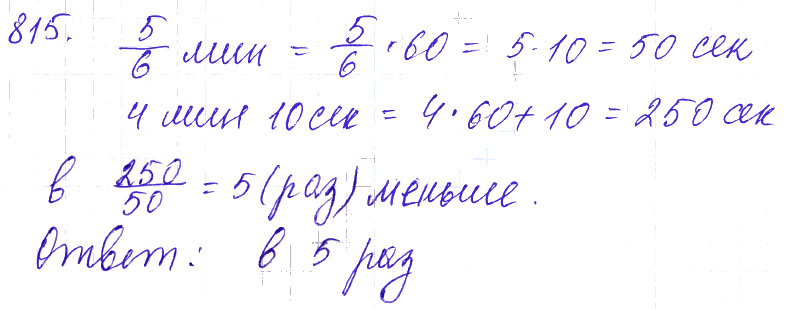 815. 5/6 мин = 5/6 · 60 = 5 · 10 = 50 сек
4 мин 10 сек = 4 · 60 + 10 = 250 сек
в 250/50 = 5 (раз) меньше.
Ответ: в 5 раз